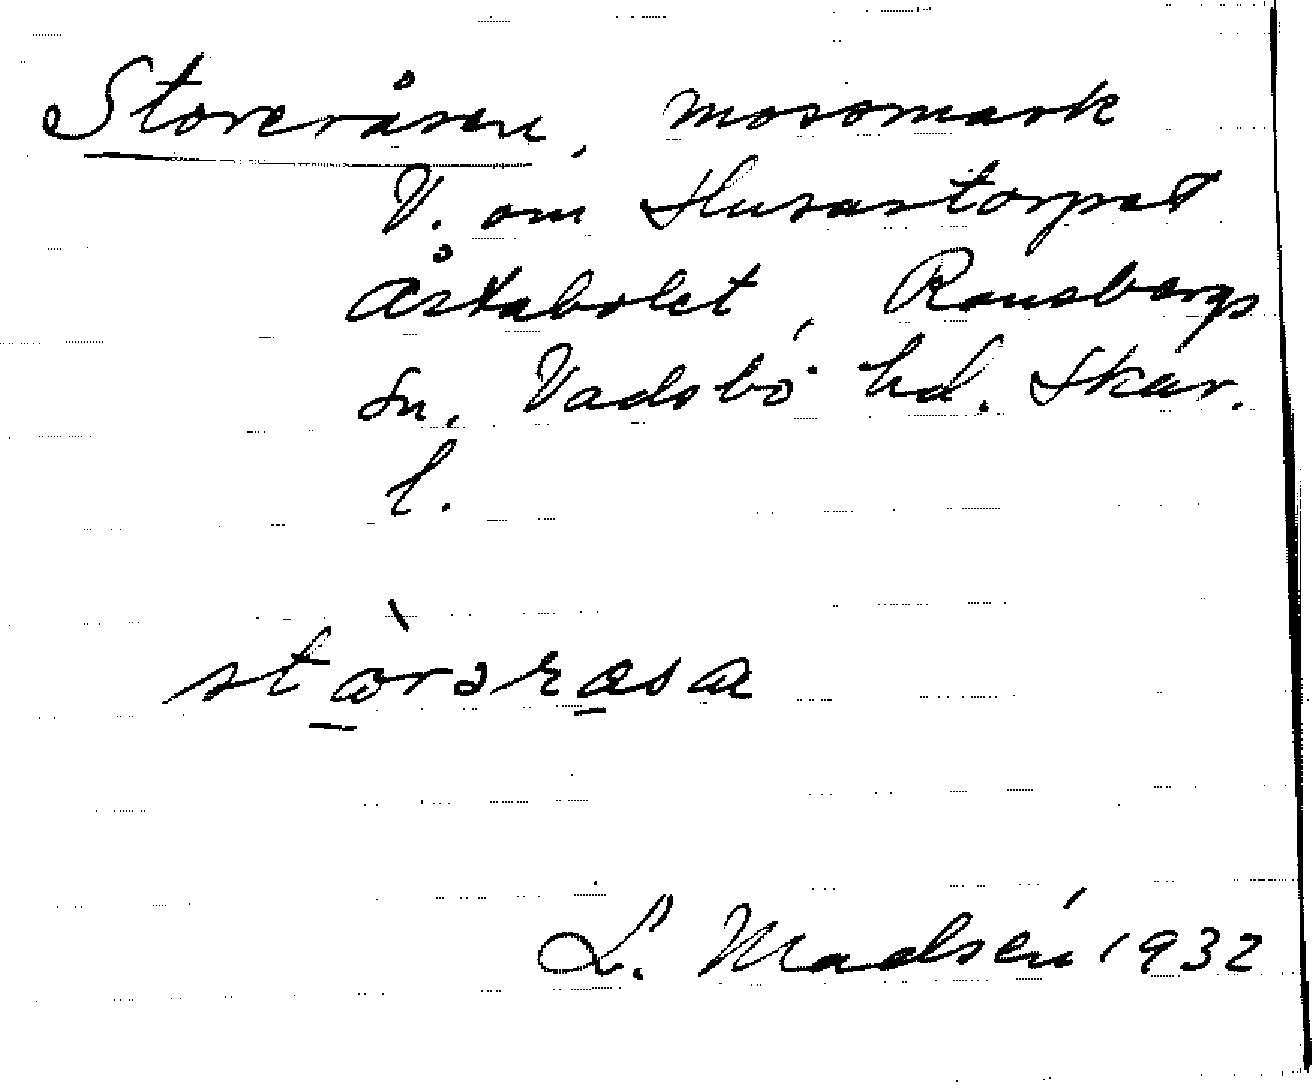 Storeråsen, mossmark
V. om Husartorpet
Åstabolet, Ransbergs
sn. Vadsbo hd. Skar.
l.
stòrərasa
L. Madsén 1932